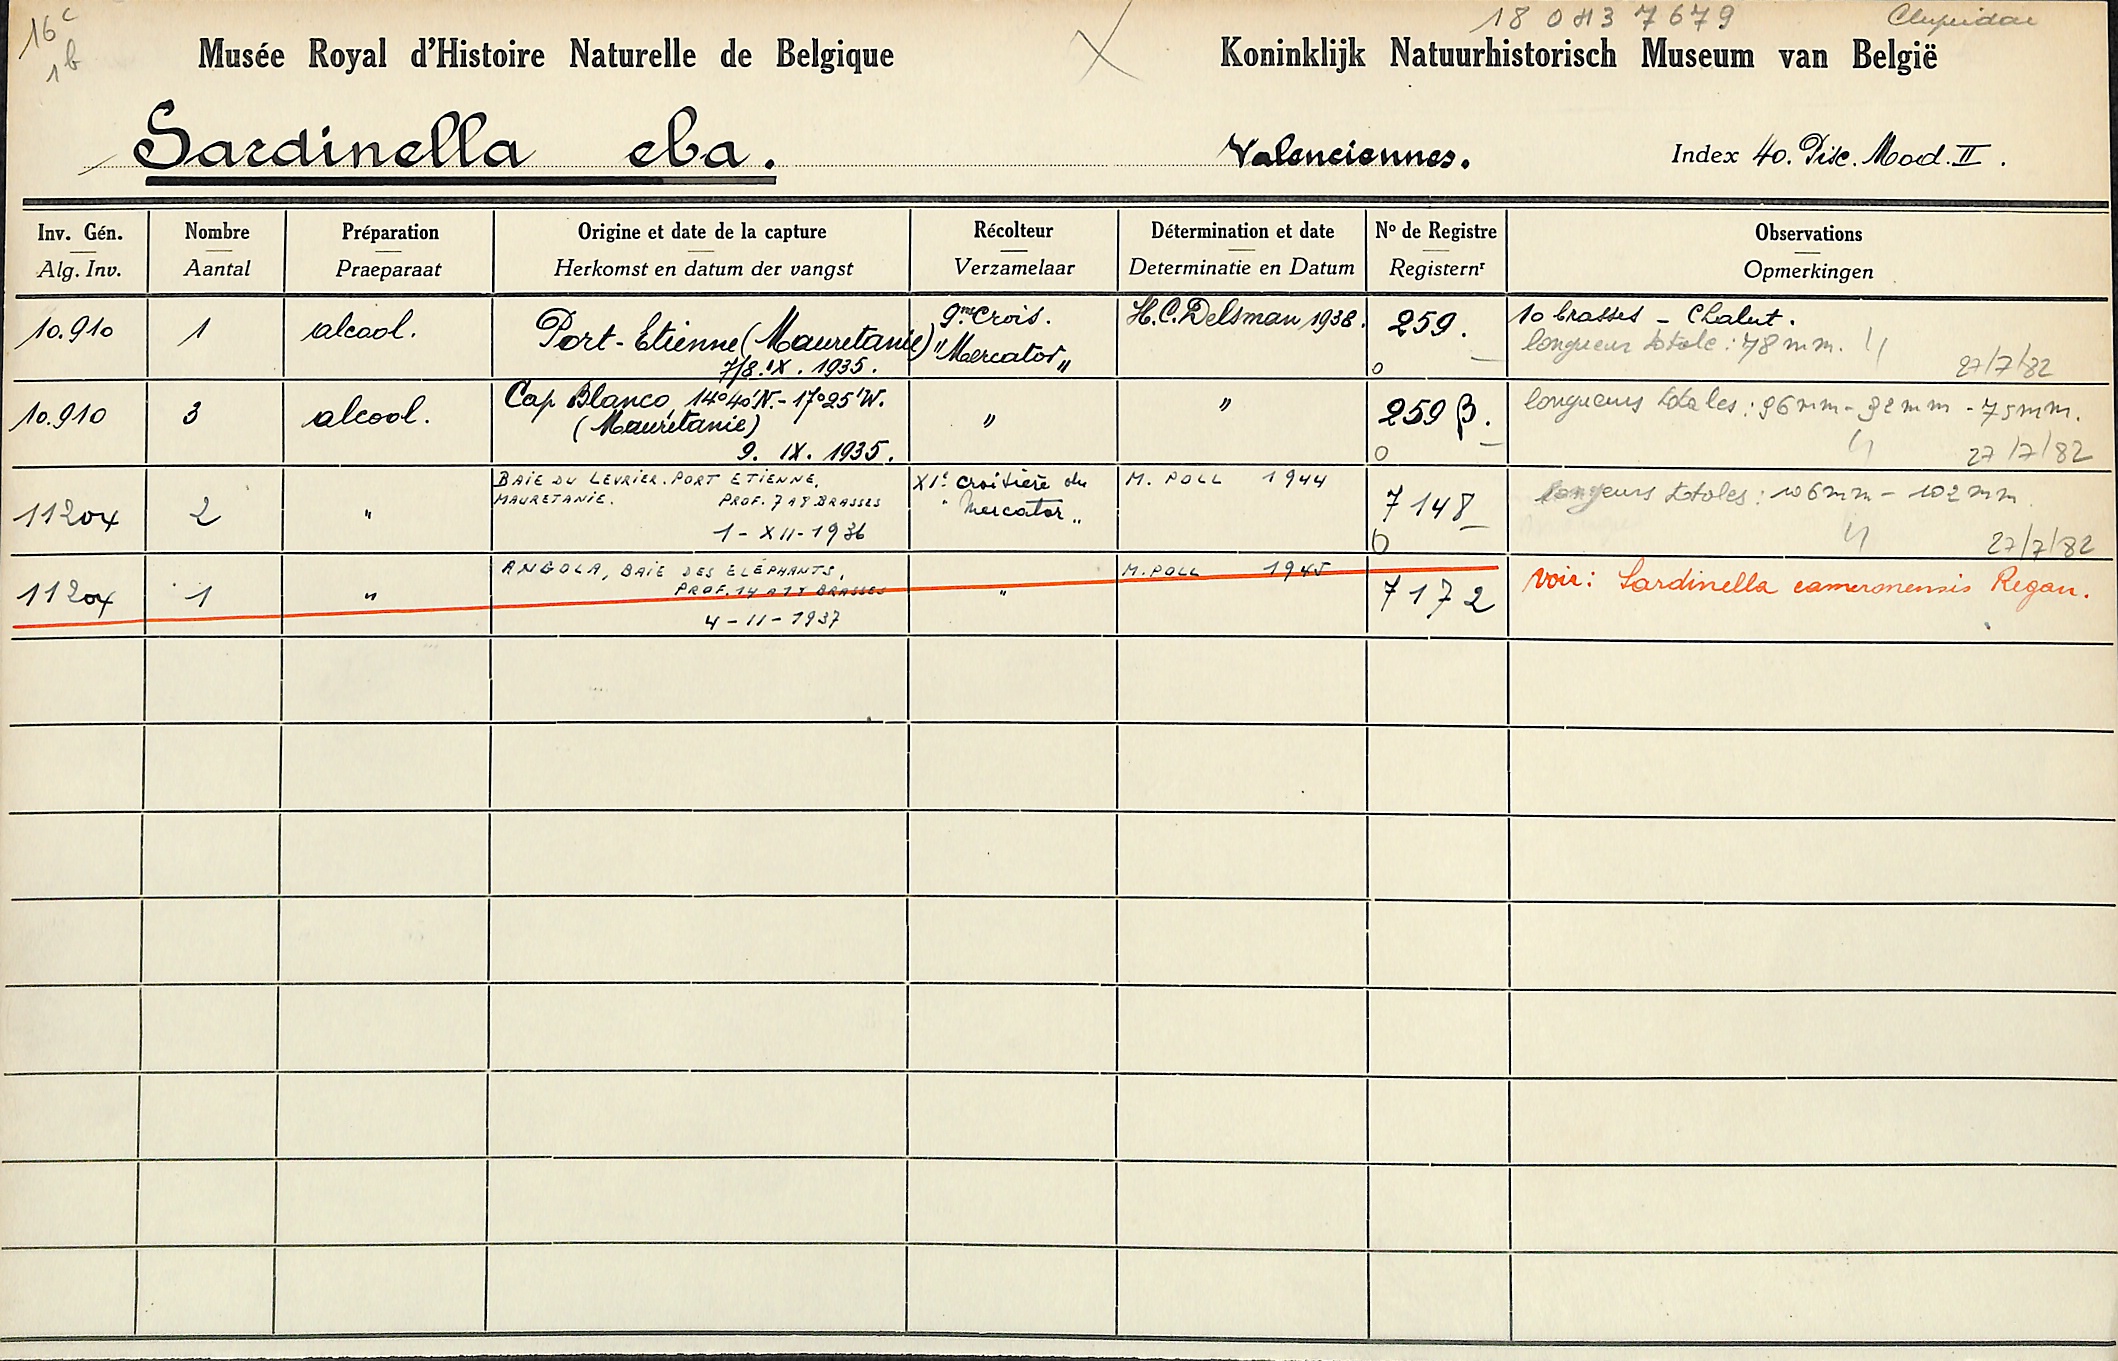 16c 18 0437679 Clupeidae
1b
Musée Royal d'Histoire Naturelle de Belgique Koninklijk Natuurhistorisch Museum van België
Sardinella eba. Valenciennes. Index 40. Disc. Mod. II.
Inv. Gén. Nombre Préparation Origine et date de la capture Récolteur Détermination et date No de Registre Observations
Alg. Inv. Aantal Praeparaat Herkomst en datum der vangst Verzamelaar Determinatie en Datum Registernr Opmerkingen
10.910 1 alcool. Port-Etienne (Mauretanie) 9me Crois. H.C. Delsman 1938. 259. 10 brasses - Chalut.
7/8.IX.1935. "Mercator" longueur totale : 78 mm.
27/7/82
10.910 3 alcool. Cap Blanco 14°40'N.-17°25'W. " " 259 β. longueurs totales : 96mm - 92mm - 75mm.
(Mauretanie)
9. IX. 1935. 27/7/82
11204 2 " BAIE DU LEVRIER. PORT ETIENNE, XIe croisière du M. POLL 1944 7148 longueurs totales : 106mm - 102mm
MAURETANIE. PROF. 7 A 8 BRASSES "Mercator"
1-XII-1936 27/7/82
11204 1 " ANGOLA, BAIE DES ELÉPHANTS, " M. POLL 1945 7172 voir : Sardinella cameronensis Regan.
PROF. 14 A 18 BRASSES
4-11-1937